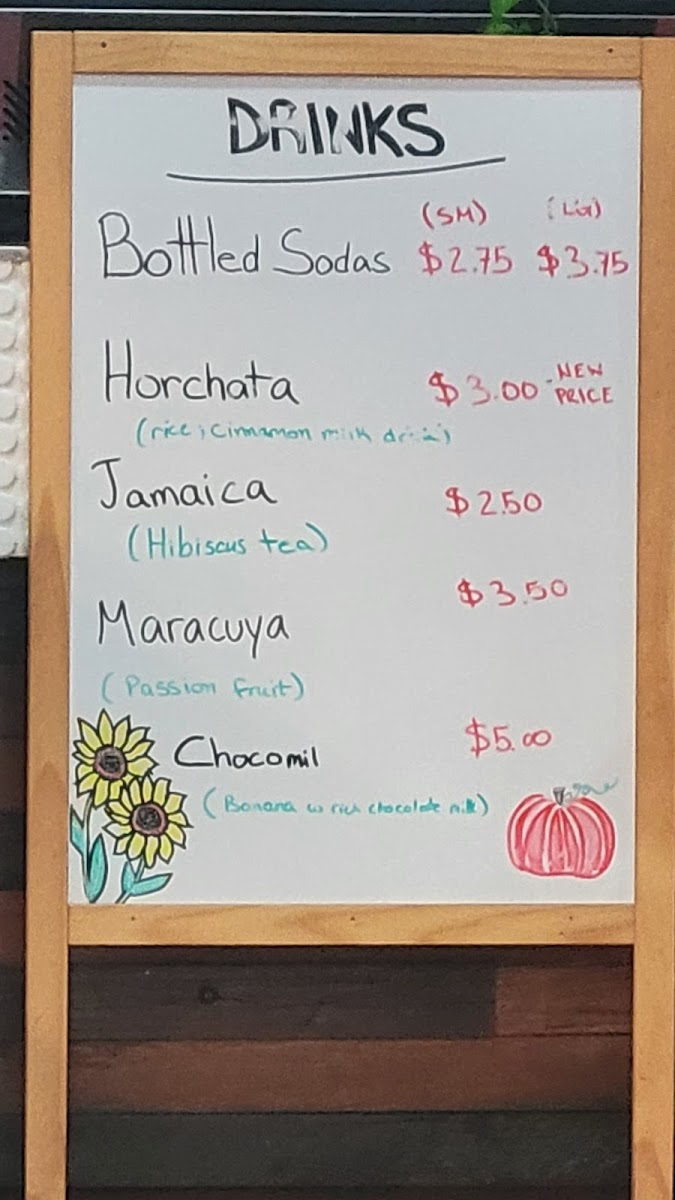 DRINKS
(SM) (LG)
Bottled Sodas $2.75 $3.75
Horchata $3.00 - NEW PRICE
(rice, cinnamon milk drink)
Jamaica $2.50
(Hibiscus tea)
Maracuya $3.50
(Passion fruit)
Chocomil $5.00
(Banana w rich chocolate milk)